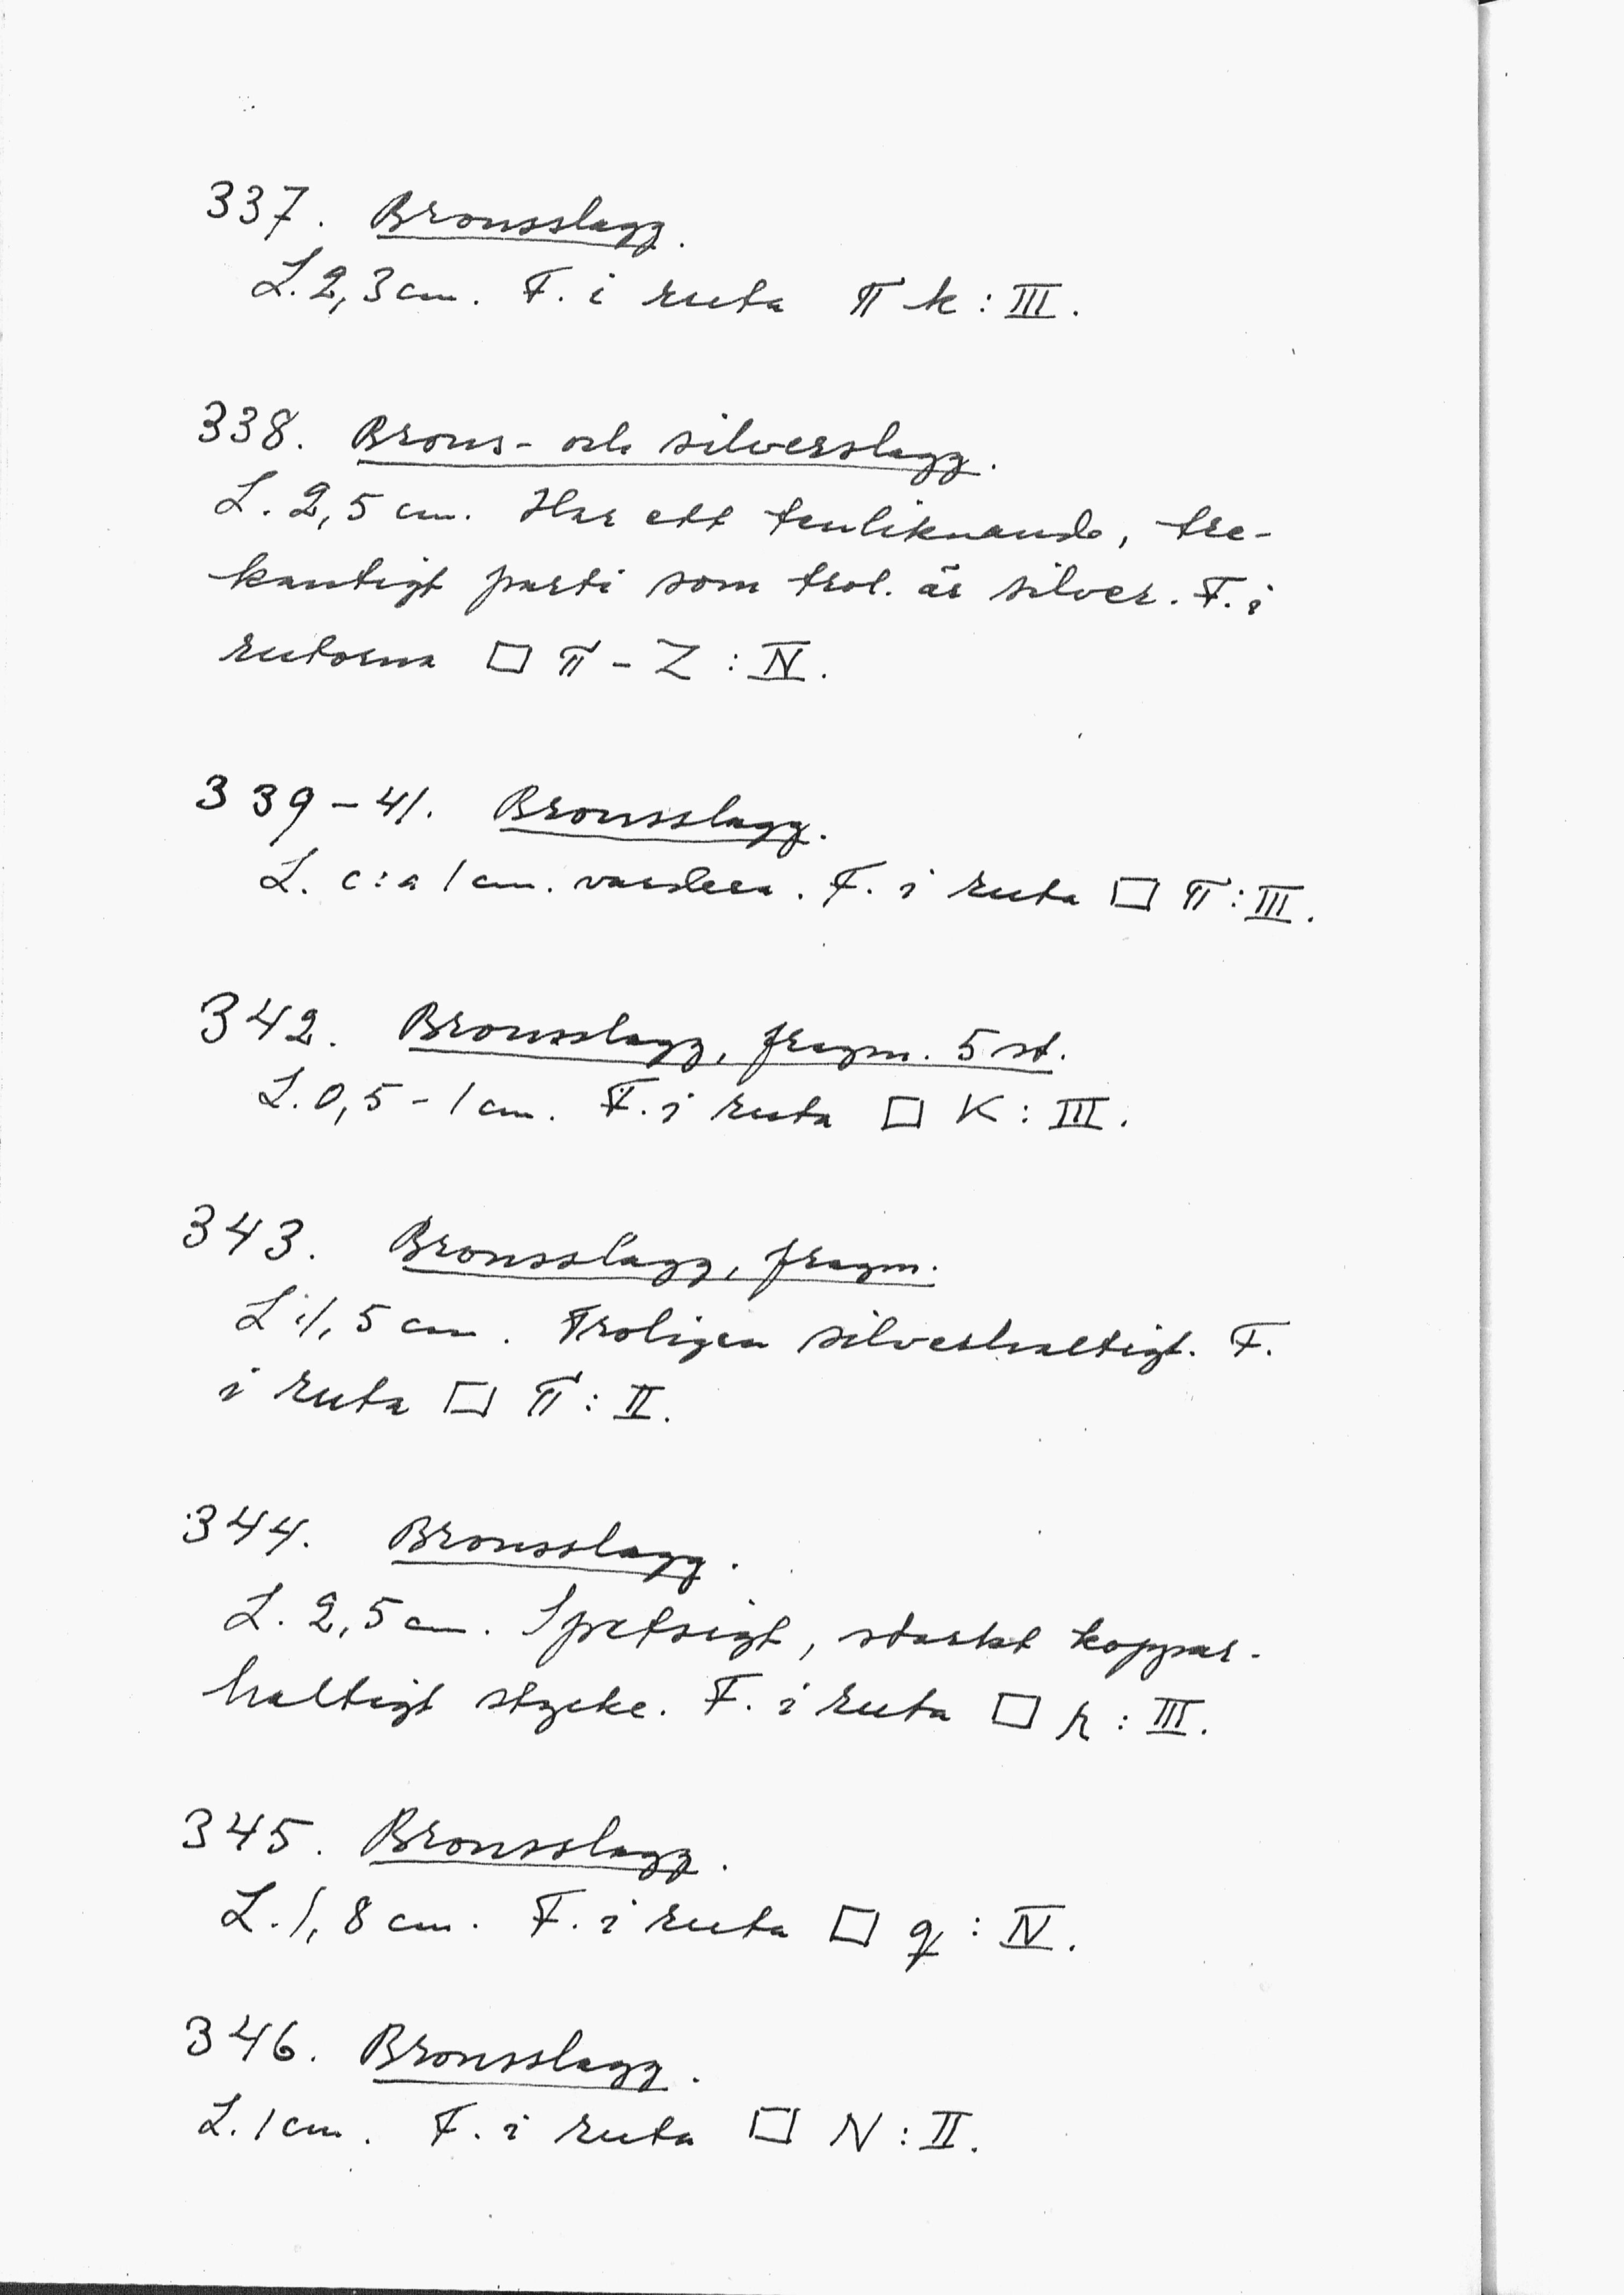 337. Bronsslagg.
L. 2,3 cm. F. i ruta π k : III.
338. Brons- och silverslagg.
L. 2,5 cm. Har ett tenliknande, tre-
kantigt parti som trol. är silver. F. i
rutorna □ π - Z : IV.
339-41. Bronsslagg.
L. c:a 1 cm. vardera. F. i ruta □ π : III.
342. Bronsslagg, fragm. 5 st.
L. 0,5 - 1 cm. F. i ruta □ K : III.
343. Bronsslagg, fragm.
L. 1,5 cm. Troligen silverhaltigt. F.
i ruta □ π : II.
344. Bronsslagg.
L. 2,5 cm. Spetsigt, starkt koppar-
haltigt stycke. F. i ruta □ : III.
345. Bronsslagg.
L. 1,8 cm. F. i ruta □ q : IV.
346. Bronsslagg.
L. 1 cm. F. i ruta □ N : II.